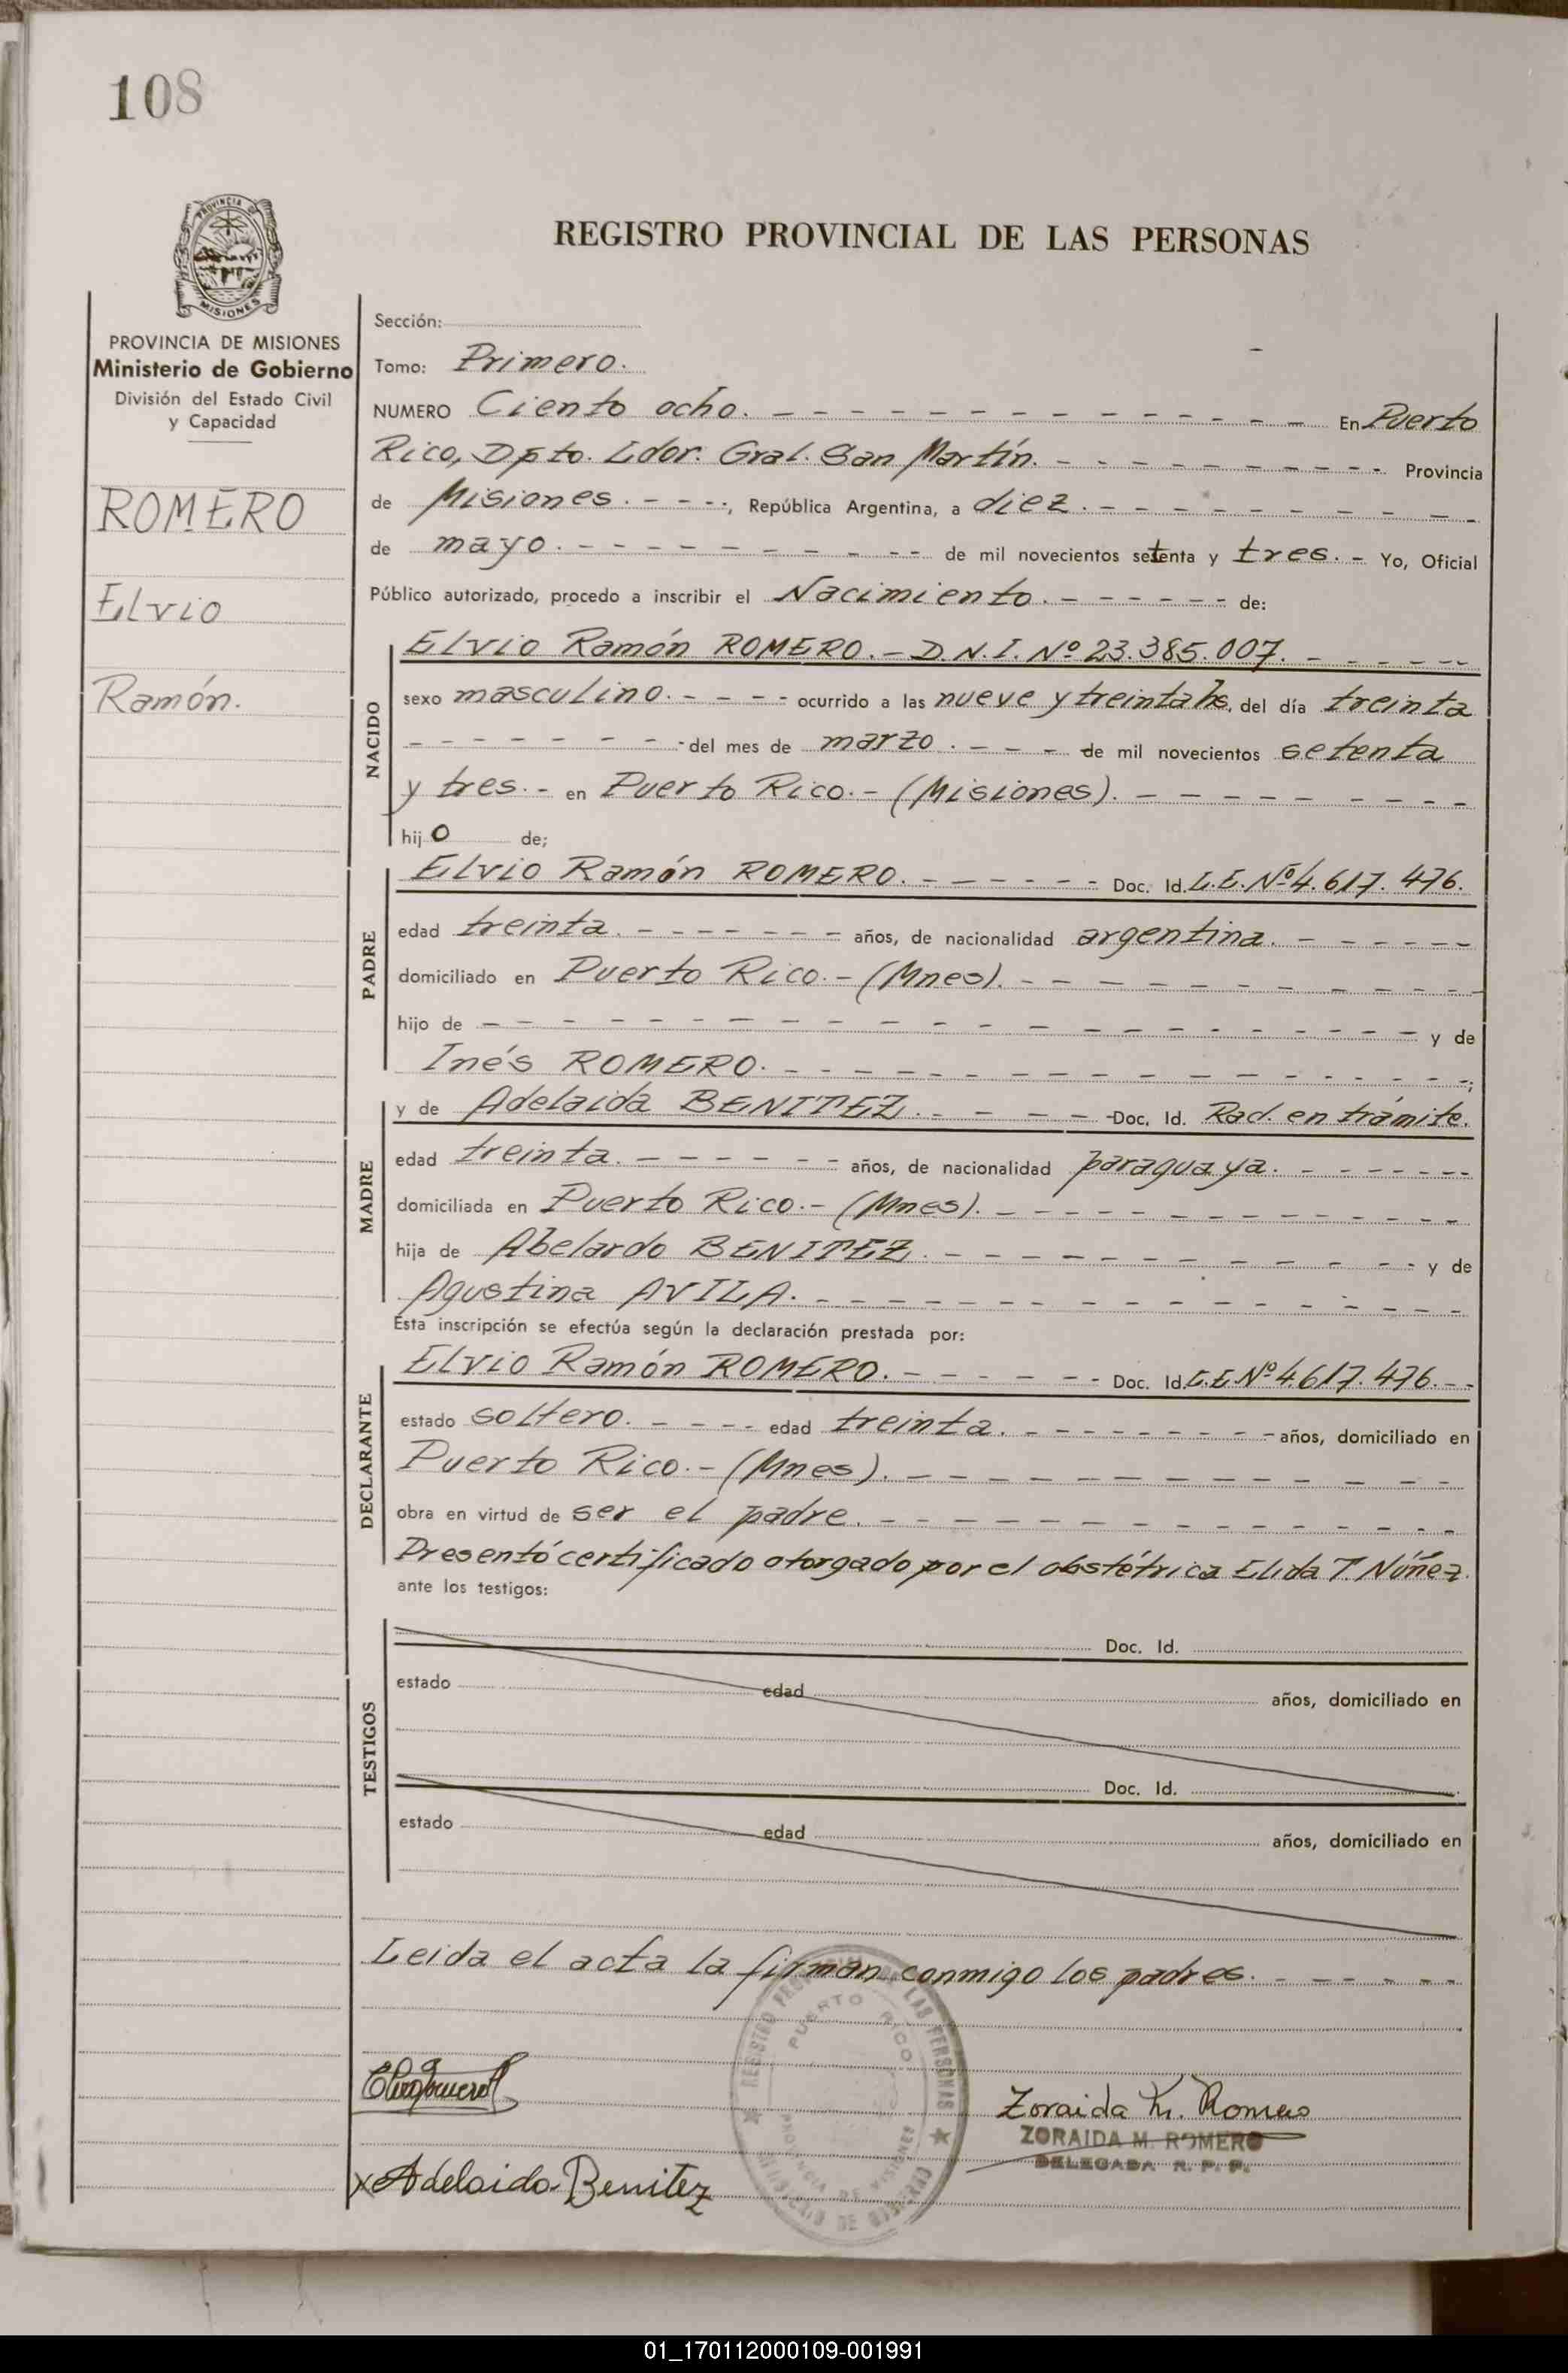 108
PROVINCIA DE
MISIONES
REGISTRO PROVINCIAL DE LAS PERSONAS
PROVINCIA DE MISIONES
Ministerio de Gobierno
División del Estado Civil
y Capacidad
ROMERO
Elvio
Ramón.
Sección:
Tomo: Primero.
NUMERO Ciento ocho. - - - - - - - - - - - - - En Puerto
Rico, Dpto. Ldor. Gral. San Martín. - - - - - - - - - Provincia
de Misiones. - - - -, República Argentina, a diez. - - - - - - - - - -
de mayo. - - - - - - - - - de mil novecientos setenta y tres. - Yo, Oficial
Público autorizado, procedo a inscribir el Nacimiento. - - - - - - de:
NACIDO
Elvio Ramón ROMERO. - D.N.I. Nº 23.385.007. - - - - - -
sexo masculino. - - - - ocurrido a las nueve y treinta hs. del día treinta
- - - - - - - - del mes de marzo. - - - de mil novecientos setenta
y tres. - en Puerto Rico. - (Misiones). - - - - - - - - -
hijo de;
PADRE
Elvio Ramón ROMERO. - - - - - - Doc. Id. L.E. Nº 4.617.476.
edad treinta. - - - - - - - años, de nacionalidad argentina. - - - - - -
domiciliado en Puerto Rico. - (Mnes). - - - - - - - - - - - -
hijo de - - - - - - - - - - - - - - - - - - - y de
Inés ROMERO. - - - - - - - - - - - - - - - - -;
MADRE
y de Adelaida BENITEZ. - - - - - Doc. Id. Rad. en trámite.
edad treinta. - - - - - - - años, de nacionalidad paraguaya. - - - - - - -
domiciliada en Puerto Rico. - (Mnes). - - - - - - - - - - - -
hija de Abelardo BENITEZ. - - - - - - - - - - - - y de
Agustina AVILA. - - - - - - - - - - - - - - -
Esta inscripción se efectúa según la declaración prestada por:
DECLARANTE
Elvio Ramón ROMERO. - - - - - - Doc. Id. L.E. Nº 4.617.476. - -
estado soltero. - - - - edad treinta. - - - - - - - - - años, domiciliado en
Puerto Rico. - (Mnes). - - - - - - - - - - - - -
obra en virtud de ser el padre. - - - - - - - - - - - - - -
Presentó certificado otorgado por el obstétrica Elida T. Núñez.
ante los testigos:
TESTIGOS
Doc. Id.
estado edad años, domiciliado en
Doc. Id.
estado edad años, domiciliado en
Leida el acta la firman conmigo los padres. - - - - - -
REGISTRO PROVINCIAL DE LAS PERSONAS
PUERTO RICO
PROVINCIA DE MISIONES
MINISTERIO DE GOBIERNO
Zoraida M. Romero
ZORAIDA M. ROMERO
DELEGADA R. P. P.
x Adelaida Benitez
01_170112000109-001991